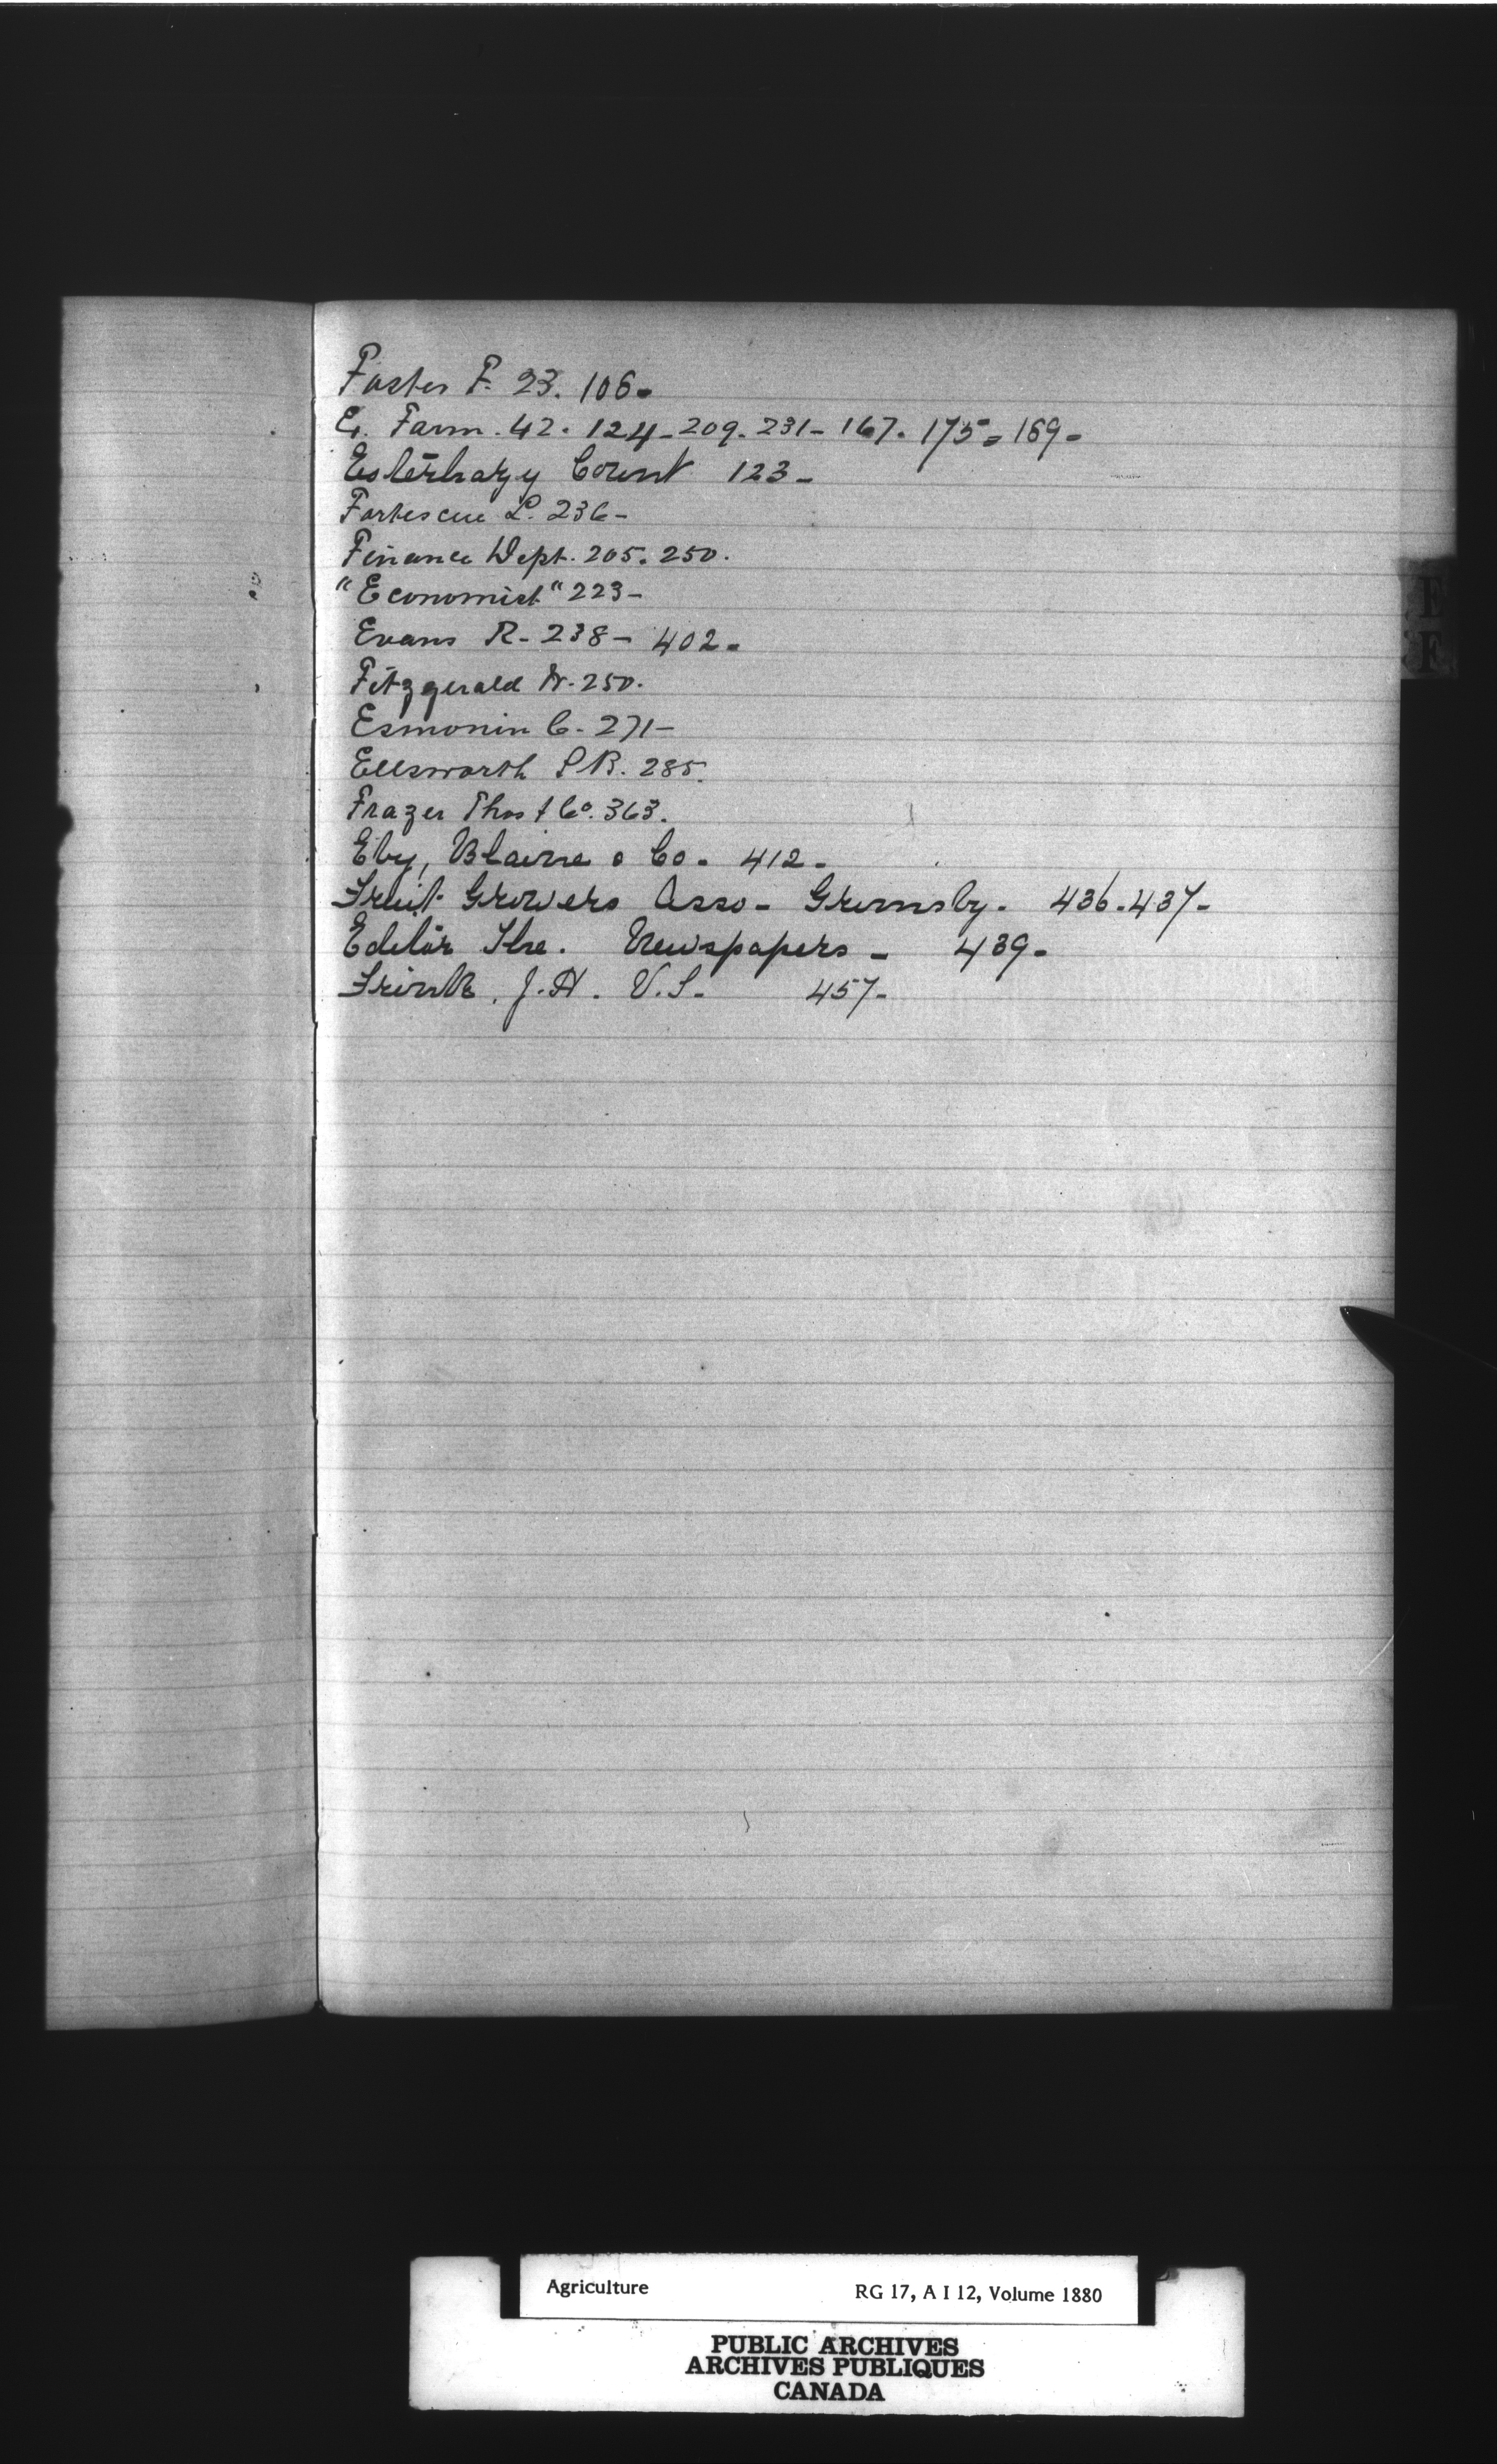 Foster F. 23. 106-
E. Farm. 42. 124-209-231-167. 175-169-
Esterhazy Count 123-
Fortescue L. 236-
Finance Dept. 205. 250.
"Economist" 223-
Evans R- 238- 402-
Fitzgerald W. 250.
Esmonin C. 271-
Ellsworth P.B. 285.
Frazer Thos & Co. 363.
Eby, Blaine & Co. 412-
Fruit Growers Asso- Grimsby. 436-437-
Editor The. Newspapers - 439-
Frink, J.H. V.S. 457-
E
F
Agriculture RG 17, A I 12, Volume 1880
PUBLIC ARCHIVES
ARCHIVES PUBLIQUES
CANADA